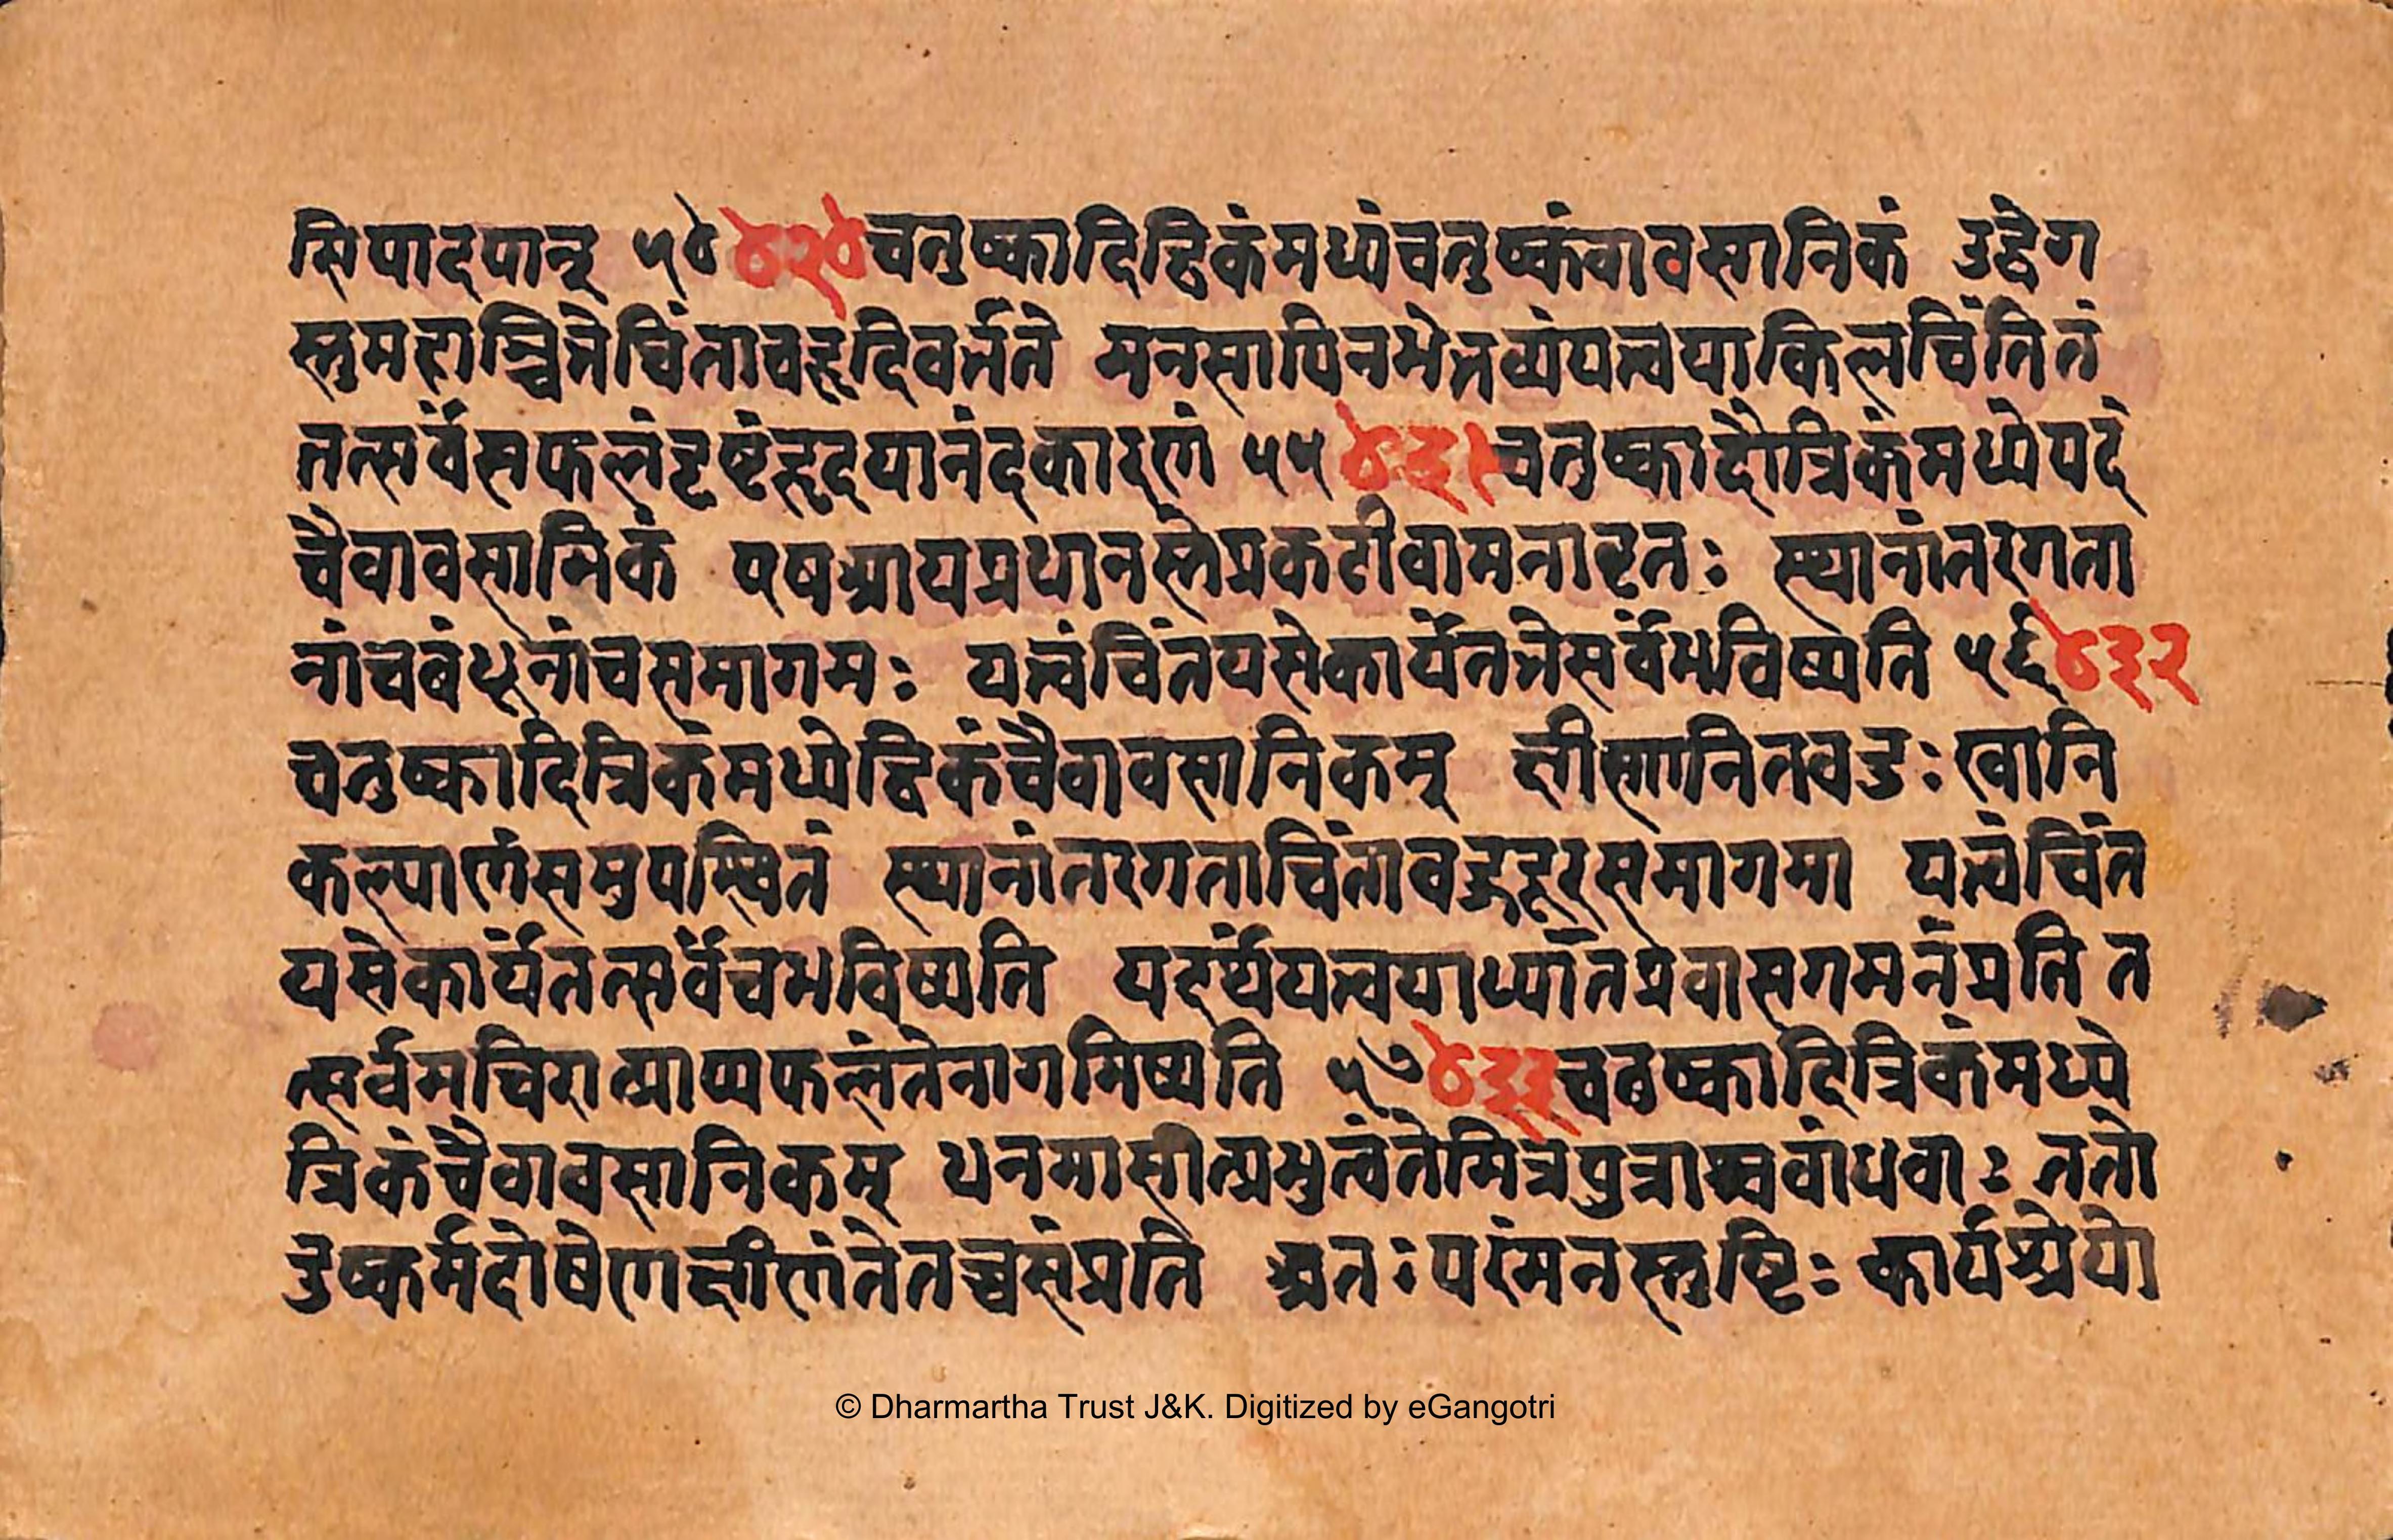 सिपादपान् ५४ ४२४ चतुष्कादिद्विकंमध्यंचतुष्कंवावसानिकं उद्वेग
स्तुमहाञ्चित्तेचिंताचहृदिवर्त्तते मनसापिनभेत्तव्यंयत्त्वयाकिलचिंतितं
तत्सर्वंसफलंदृष्टंहृदयानंदकारणं ५५ ४३१ चतुष्कादौत्रिकंमध्येपदं
चैवावसानिकं प्रकटीवामनावृतः स्थानांतरगता
नांचबंधूनांचसमागमः यत्त्वंचिंतयसेकार्यंतत्तेसर्वंभविष्यति ५६ ४३२
चतुष्कादित्रिकंमध्येद्विकंचैवावसानिकम् क्षीणानितवदुःखानि
कल्याणंसमुपस्थितं स्थानांतरगताचिंतावद्दूरसमागमा यत्त्वंचिंत
यसेकार्यंतत्सर्वंचभविष्यति यदर्थंयत्त्वयाध्यातंप्रवासगमनंप्रति त
त्सर्वमचिरात्प्राप्यफलंतेनागमिष्यति ५७ ४३३ चतुष्कादित्रिकंमध्ये
त्रिकंचैवावसानिकम् धनमासीत्प्रभुत्वंतेमित्रपुत्राश्चबांधवाः ततो
दुष्कर्मदोषेणक्षीणंतेतच्चसंप्रति अतःपरंमनस्तुष्टिः कार्यश्रेयो
© Dharmartha Trust J&K. Digitized by eGangotri